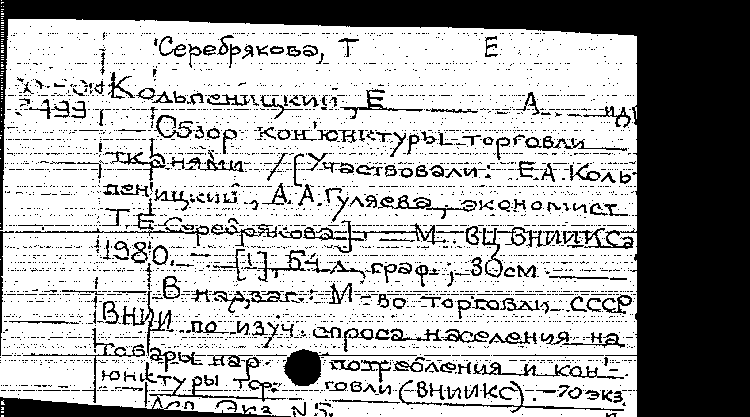 Серебрякова, Т Е
Кольпеницкий, Е А. и др
499
Обзор кон'юнктуры торговли
тканями / [Участвовали: Е.А. Коль-
пеницкий, А.А. Гуляева, экономист
Т.Е. Серебрякова]. — М.: ВЦ ВНИИКСа
1980. — [1], 54 л., граф.; 30см. —
В надзаг.: М-во торговли СССР
ВНИИ по изуч. спроса населения на
товары нар. потребления и кон'-
юнктуры тор- говли (ВНИИКС). — 70 экз.
Экз. N5.